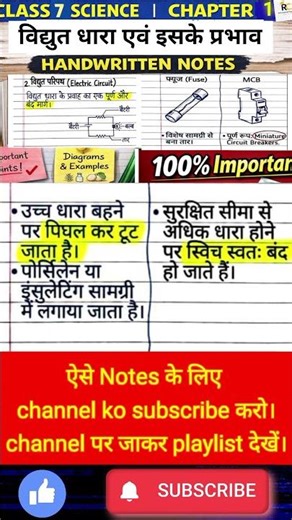 CLASS 7 SCIENCE | CHAPTER 1
विद्युत धारा एवं इसके प्रभाव
HANDWRITTEN NOTES
2. विद्युत परिपथ (Electric Circuit)
विद्युत धारा के प्रवाह का एक पूर्ण और
बंद मार्ग।
बैटरी
बैटरी
तार
फ्यूज (Fuse)
• विशेष सामग्री से
बना तार।
MCB
• पूर्ण रूप: Miniature
Circuit Breakers.
Diagrams
& Examples
100% Important
• उच्च धारा बहने
पर पिघल कर टूट
जाता है।
• पोर्सिलेन या
इंसुलेटिंग सामग्री
में लगाया जाता है।
• सुरक्षित सीमा से
अधिक धारा होने
पर स्विच स्वतः बंद
हो जाते हैं।
ऐसे Notes के लिए
channel ko subscribe करो।
channel पर जाकर playlist देखें।
SUBSCRIBE